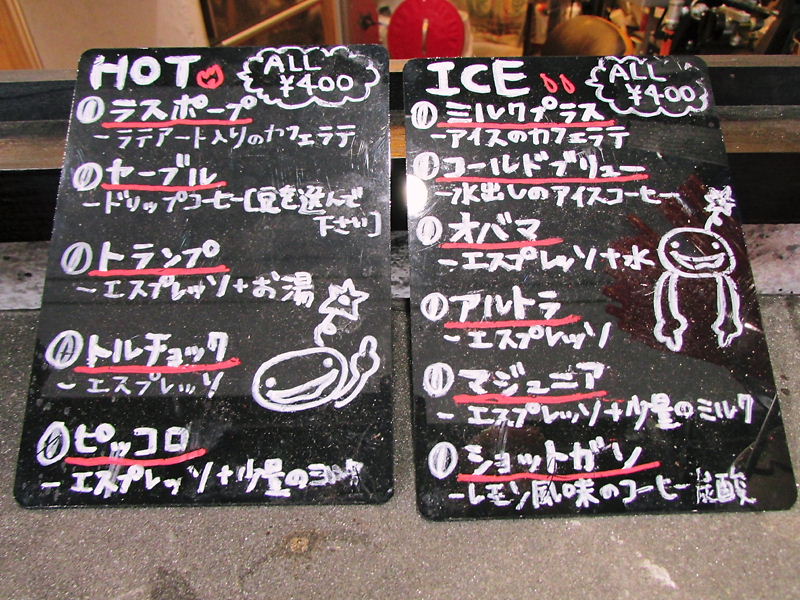 HOT
ALL
¥400
ラスポープ
-ラテアート入りのカフェラテ
ヤーブル
-ドリップコーヒー[豆を選んで
下さい]
トランプ
-エスプレッソ+お湯
トルチョック
-エスプレッソ
ピッコロ
-エスプレッソ+少量のミルク
ICE
ALL
¥400
ミルクプラス
-アイスのカフェラテ
コールドブリュー
-水出しのアイスコーヒー
オバマ
-エスプレッソ+水
アルトラ
-エスプレッソ
マジュニア
-エスプレッソ+少量のミルク
ショットガン
-レモン風味のコーヒー炭酸